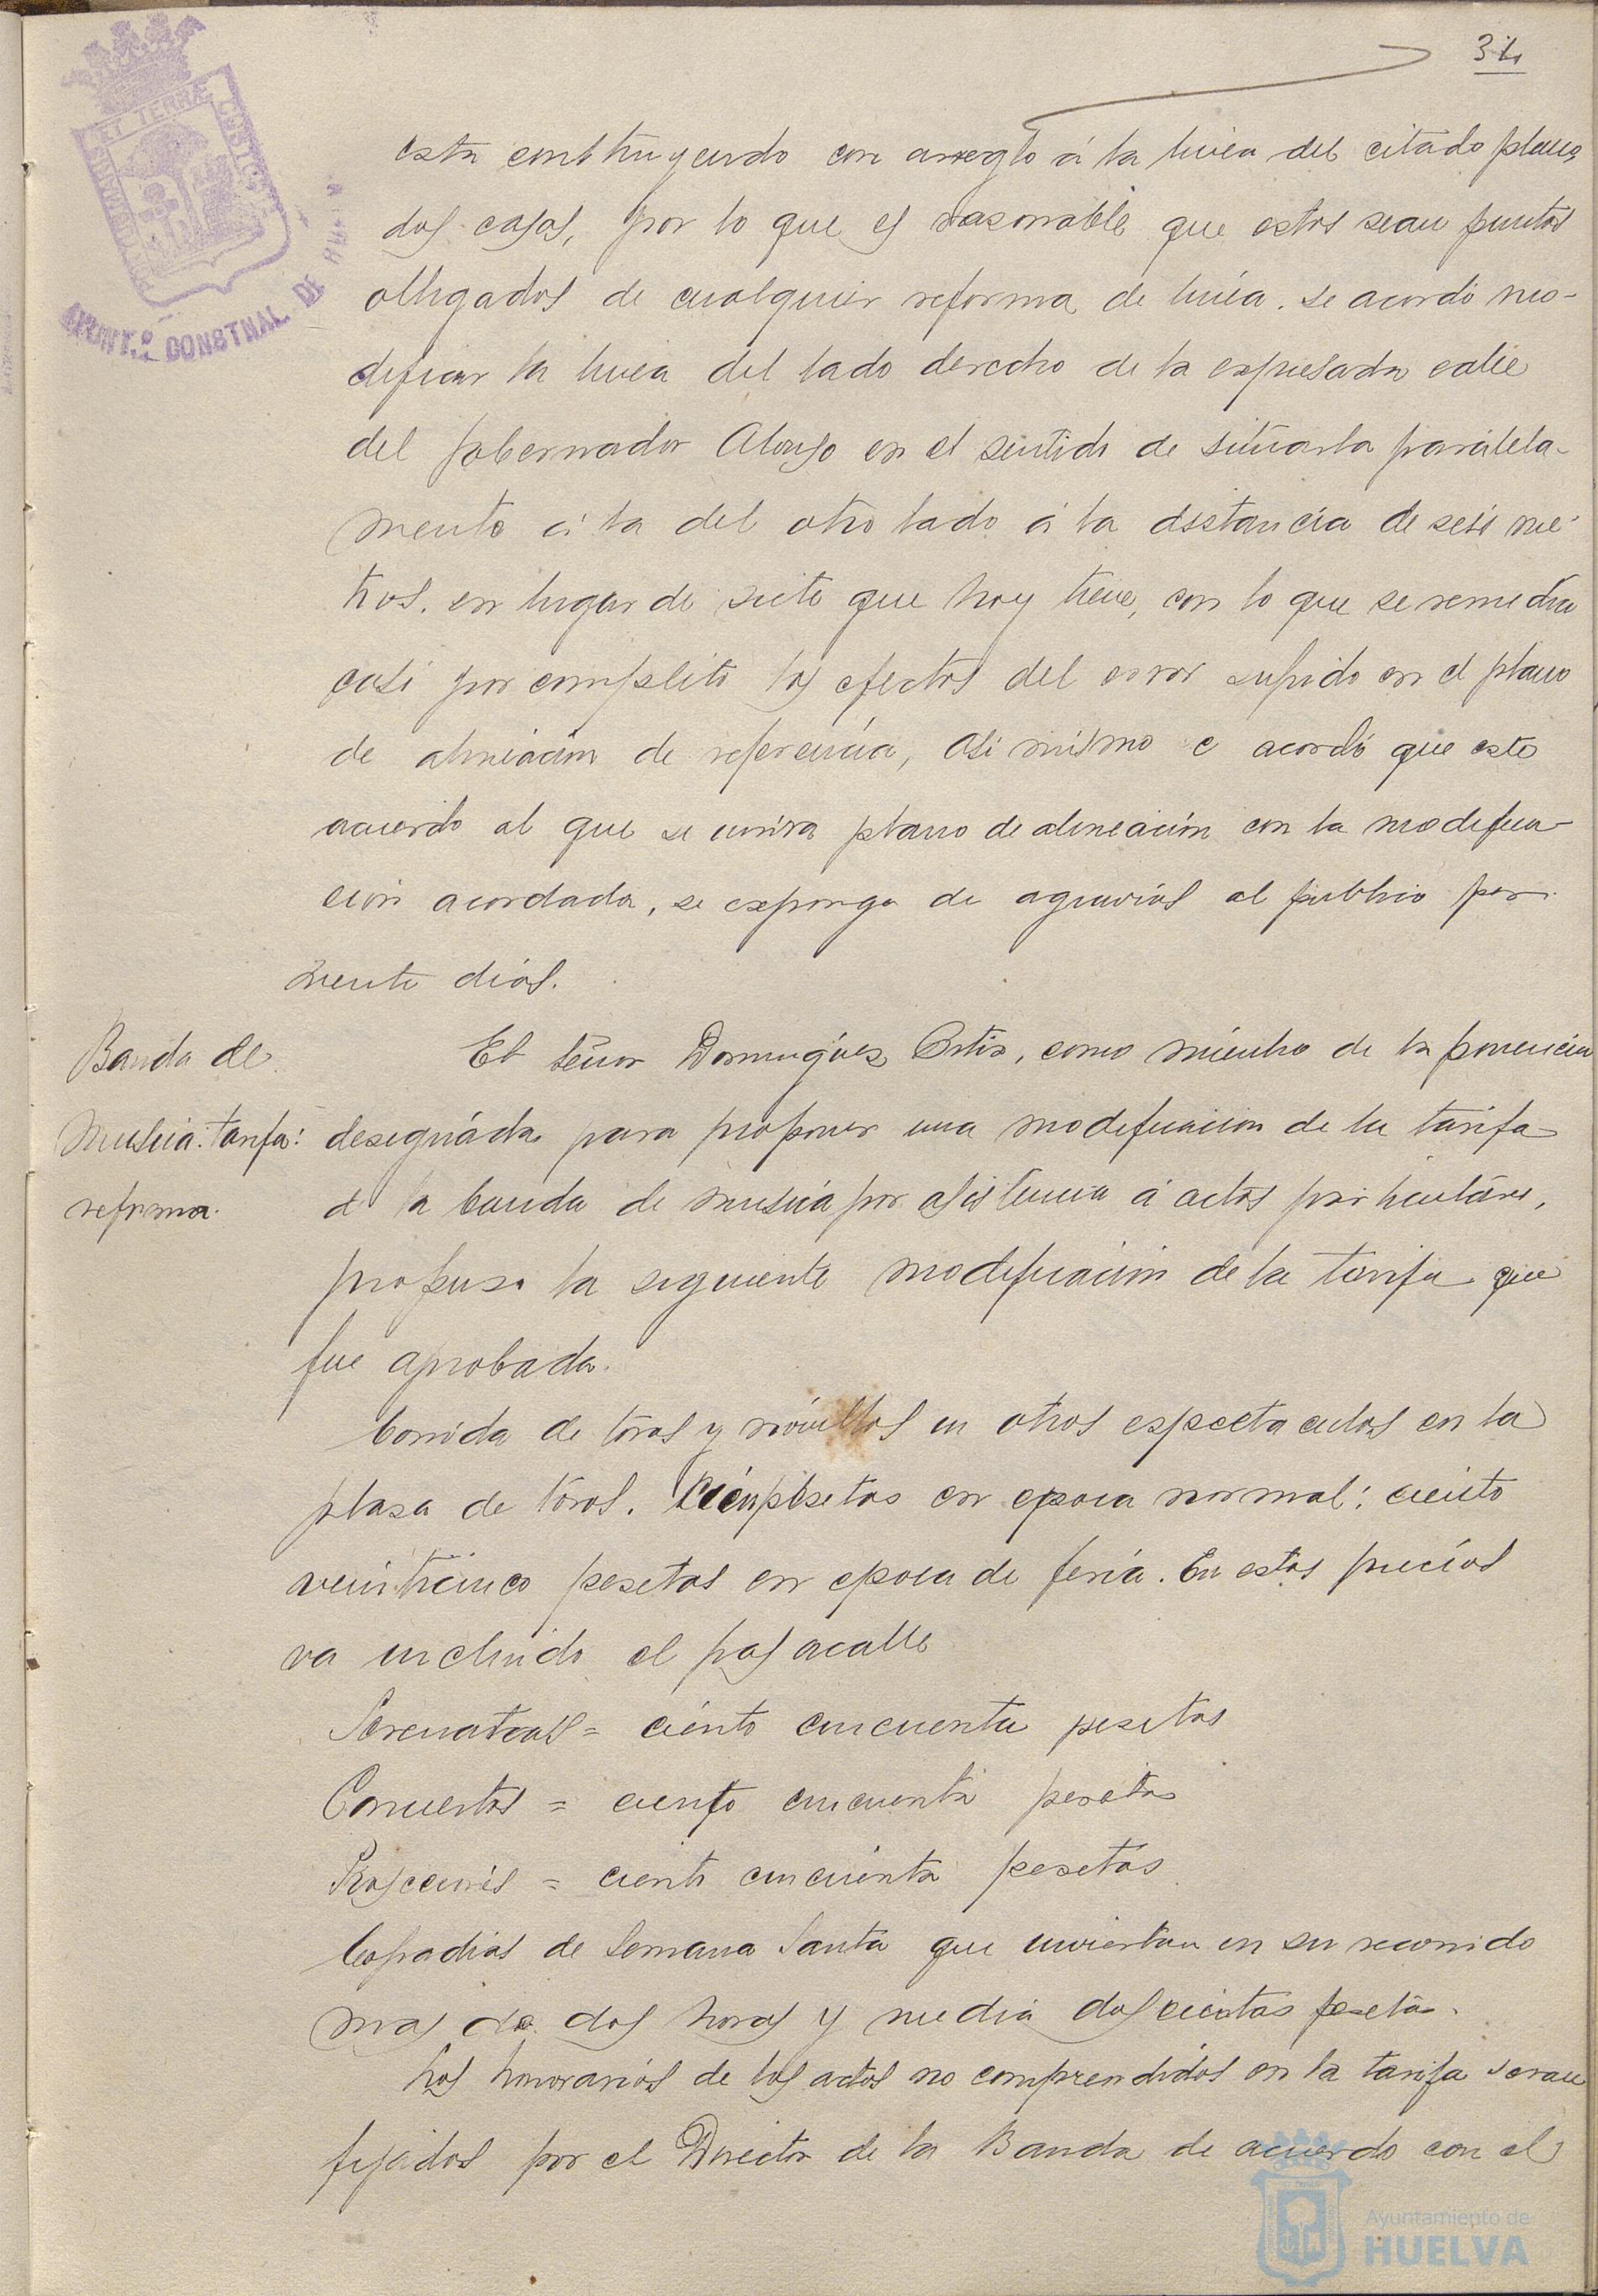 34
esta construyendo con arreglo á la linea del citado plano
dos casas, por lo que es rasonable que estos sean puntos
obligados de cualquier reforma de linéa. se acordó mo-
dificar la linea del lado derecho de la expresada calle
del gobernador Alonso en el sentido de situarla paralela-
mente á la del otro lado á la distancia de seis me-
tros. en lugar de siete que hoy tiene, con lo que se remedia
casi por completo los efectos del error sufrido en el plano
de alineación de referencia, asi mismo e acordó que este
acuerdo al que se unirá plano de alineación con la modifica-
ción acordada, se exponga de agravios al publico por
veinte dias.
Banda de
Musica. tarifa:
reforma.
El señor Dominguez Ortiz, como miembro de la ponencia
designáda para proponer una modificación de la tarifa
d la banda de musica por asistencia á actos particulares,
propuso la siguiente modificación de la tarifa que
fue aprobada.
Corrida de toros y novillos u otros espectaculos en la
plasa de toros. Cien pesetas en epoca normal: ciento
veinticinco pesetas en epoca de feria. En estos precios
va incluido el pasacalle
Serenatas = ciento cincuenta pesetas
Conciertos = ciento cincuenta pesetas
Prosceciones = ciento cincuenta pesetas
Cofradias de Semana Santa que inviertan en su recorrido
mas de dos horas y media doscientas pesetas.
Los honorarios de los actos no comprendidos en la tarifa seran
fijados por el Director de la Banda de acuerdo con el
AYUNT.º CONSTNAL. DE
Ayuntamiento de
HUELVA